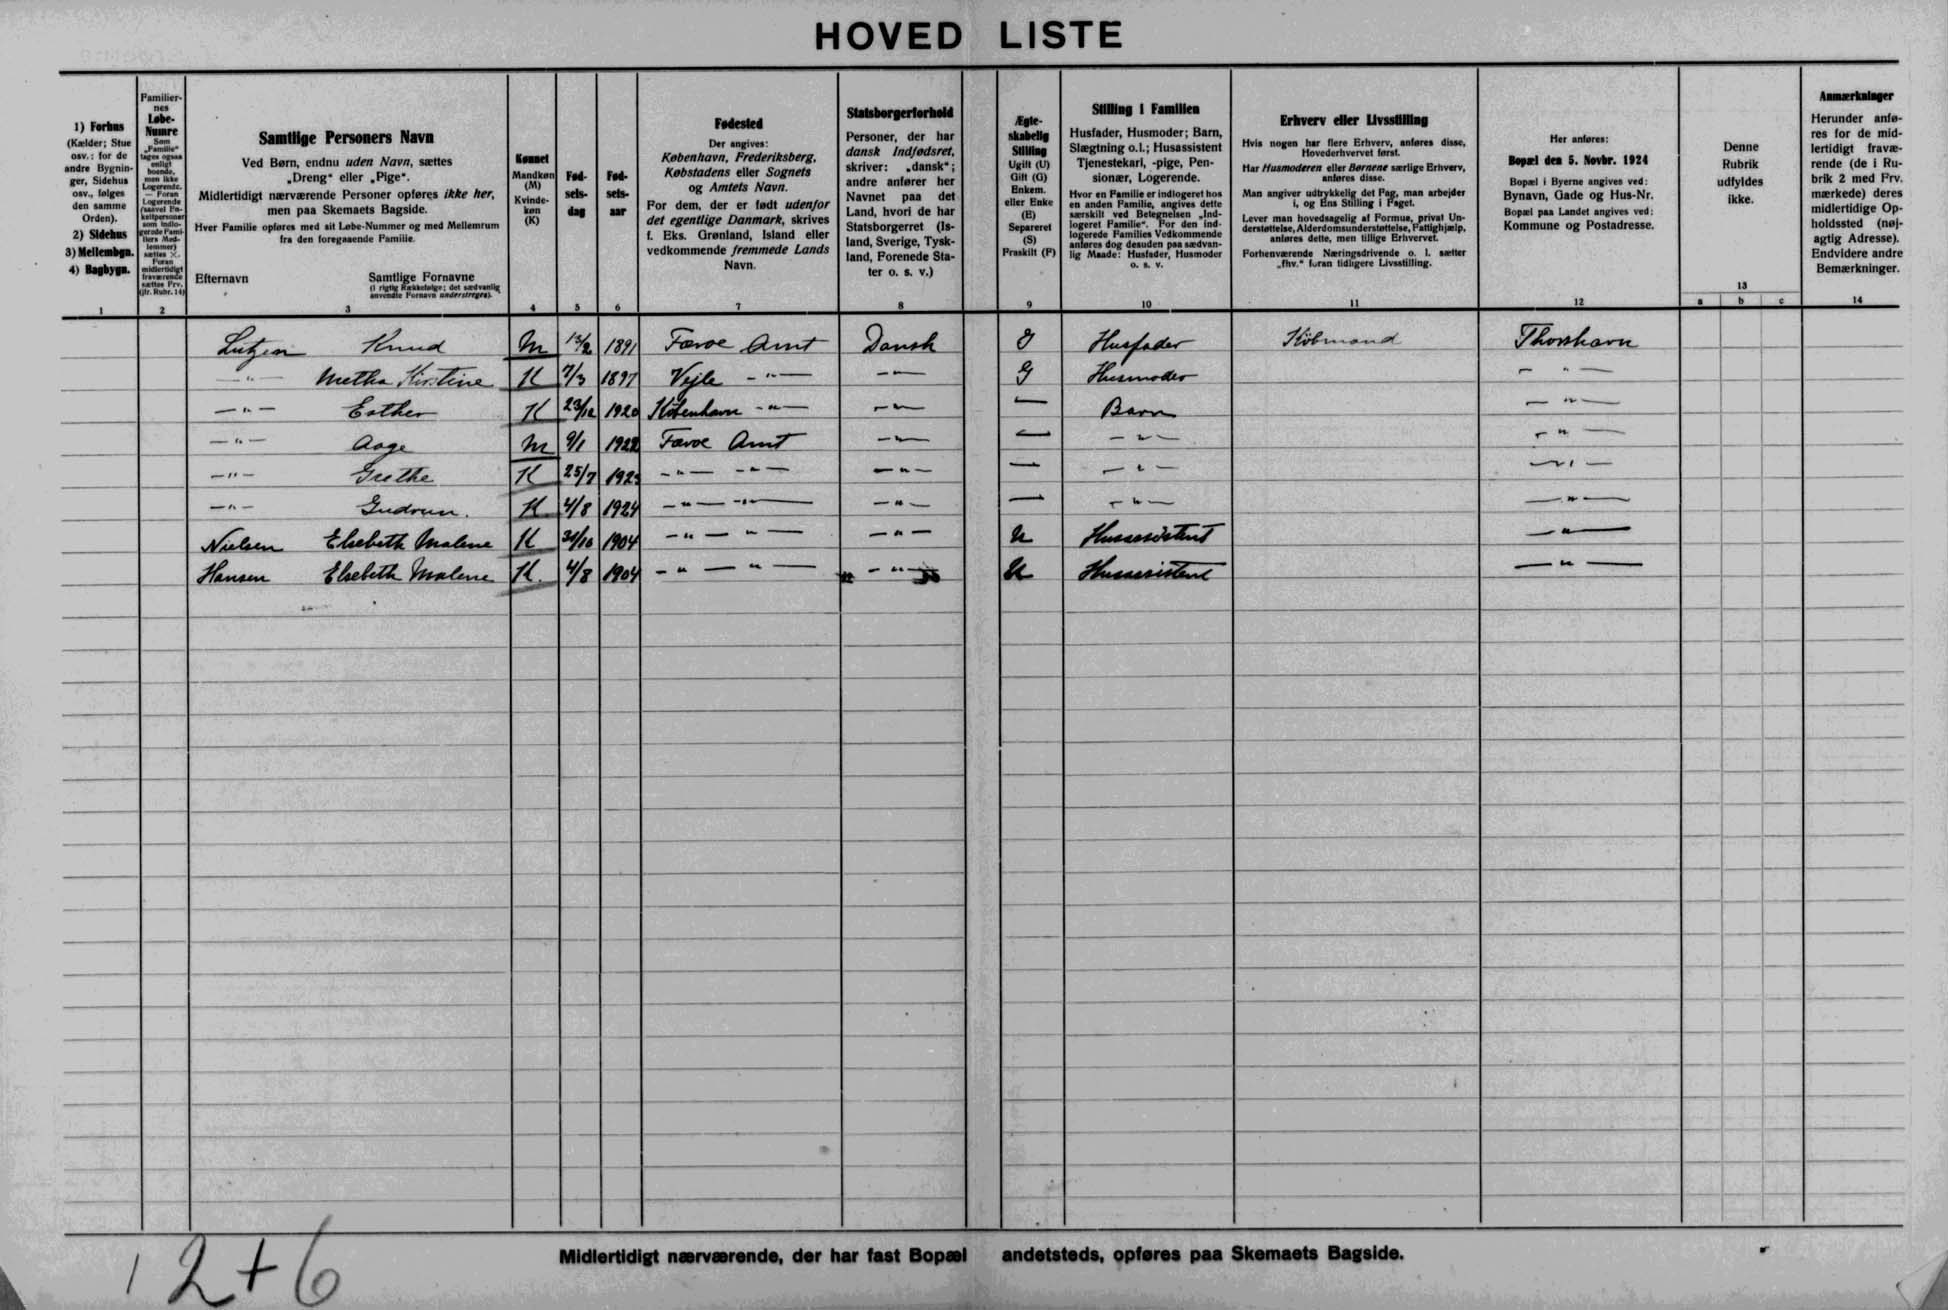 HOVED LISTE
1) Forhus
(Kælder; Stue
osv.: for de
andre Bygnin-
ger, Sidehus
osv., følges
den samme
Orden).
2) Sidehus
3) Mellembgn.
4) Bagbygn.
1
Familier-
nes
Løbe-
Numre
Som
„Familie“
tages ogsaa
enligt
boende,
men ikke
Logerende.
— Foran
Logerende
(saavel En-
keltpersoner
som Indlo-
gerede Fami-
liers Med-
lemmer)
sættes ×.
Foran
midlertidigt
fraværende
sættes Frv.
(jfr. Rubr. 14)
2
Samtlige Personers Navn
Ved Børn, endnu uden Navn, sættes
„Dreng“ eller „Pige“.
Midlertidigt nærværende Personer opføres ikke her,
men paa Skemaets Bagside.
Hver Familie opføres med sit Løbe-Nummer og med Mellemrum
fra den foregaaende Familie.
Efternavn
Samtlige Fornavne
(i rigtig Rækkefølge; det sædvanlig
anvendte Fornavn understreges).
3
Kønnet
Mandkøn
(M)
Kvinde-
køn
(K)
4
Fød-
sels-
dag
5
Fød-
sels-
aar
6
Fødested
Der angives:
København, Frederiksberg,
Købstadens eller Sognets
og Amtets Navn.
For dem, der er født udenfor
det egentlige Danmark, skrives
f. Eks. Grønland, Island eller
vedkommende fremmede Lands
Navn.
7
Statsborgerforhold
Personer, der har
dansk Indfødsret,
skriver: „dansk“;
andre anfører her
Navnet paa det
Land, hvori de har
Statsborgerret (Is-
land, Sverige, Tysk-
land, Forenede Sta-
ter o. s. v.)
8
Ægte-
skabelig
Stilling
Ugift (U)
Gift (G)
Enkem.
eller Enke
(E)
Separeret
(S)
Fraskilt (F)
9
Stilling i Familien
Husfader, Husmoder; Barn,
Slægtning o.l.; Husassistent
Tjenestekarl, -pige, Pen-
sionær, Logerende.
Hvor en Familie er indlogeret hos
en anden Familie, angives dette
særskilt ved Betegnelsen „Ind-
logeret Familie“. For den ind-
logerede Families Vedkommende
anføres dog desuden paa sædvan-
lig Maade: Husfader, Husmoder
o. s. v.
10
Erhverv eller Livsstilling
Hvis nogen har flere Erhverv, anføres disse,
Hovederhvervet først.
Har Husmoderen eller Børnene særlige Erhverv,
anføres disse.
Man angiver udtrykkelig det Fag, man arbejder
i, og Ens Stilling i Faget.
Lever man hovedsagelig af Formue, privat Un-
derstøttelse, Alderdomsunderstøttelse, Fattighjælp,
anføres dette, men tillige Erhvervet.
Forhenværende Næringsdrivende o. l. sætter
„fhv.“ foran tidligere Livsstilling.
11
Her anføres:
Bopæl den 5. Novbr. 1924
Bopæl i Byerne angives ved:
Bynavn, Gade og Hus-Nr.
Bopæl paa Landet angives ved:
Kommune og Postadresse.
12
Denne
Rubrik
udfyldes
ikke.
13
a b c
Anmærkninger
Herunder anfø-
res for de mid-
lertidigt fravæ-
rende (de i Ru-
brik 2 med Frv.
mærkede) deres
midlertidige Op-
holdssted (nøj-
agtig Adresse).
Endvidere andre
Bemærkninger.
14
Lützen Knud M 13/2 1891 Færoe Amt Dansk G Husfader Købmand Thorshavn
—"— Metha Kirstine K 7/3 1897 Vejle —"— —"— G Husmoder —"—
—"— Esther K 23/12 1920 København —"— —"— — Barn —"—
—"— Aage M 9/1 1922 Færoe Amt —"— — —"— —"—
—"— Grethe K 25/7 1923 —"— —"— —"— — —"— —"—
—"— Gudrun. K 4/8 1924 —"— —"— —"— — —"— —"—
Nielsen Elsebeth Malene K 31/10 1904 —"— —"— —"— U Husassistent —"—
Hansen Elsebeth Malene K. 4/8 1904 —"— —"— —"— U Husassistent —"—
Midlertidigt nærværende, der har fast Bopæl andetsteds, opføres paa Skemaets Bagside.
1 2+6